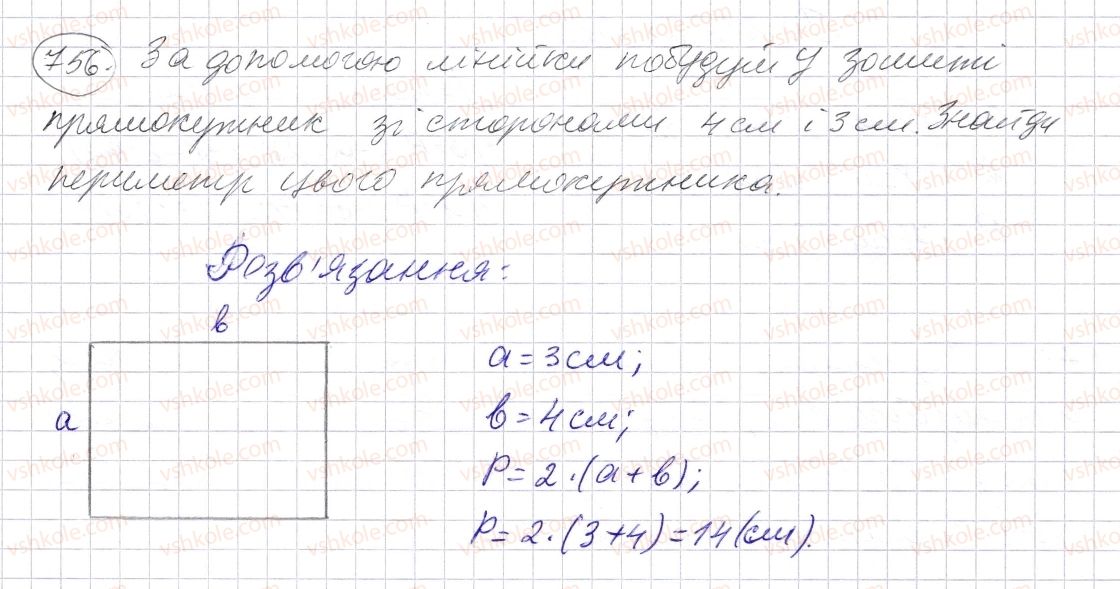 756. За допомогою лінійки побудуй у зошиті
прямокутник зі сторонами 4 см і 3 см. Знайди
периметр цього прямокутника.
Розв'язання:
в
а
а = 3 см;
в = 4 см;
Р = 2 · (а + в);
Р = 2 · (3 + 4) = 14 (см).
vshkole.com